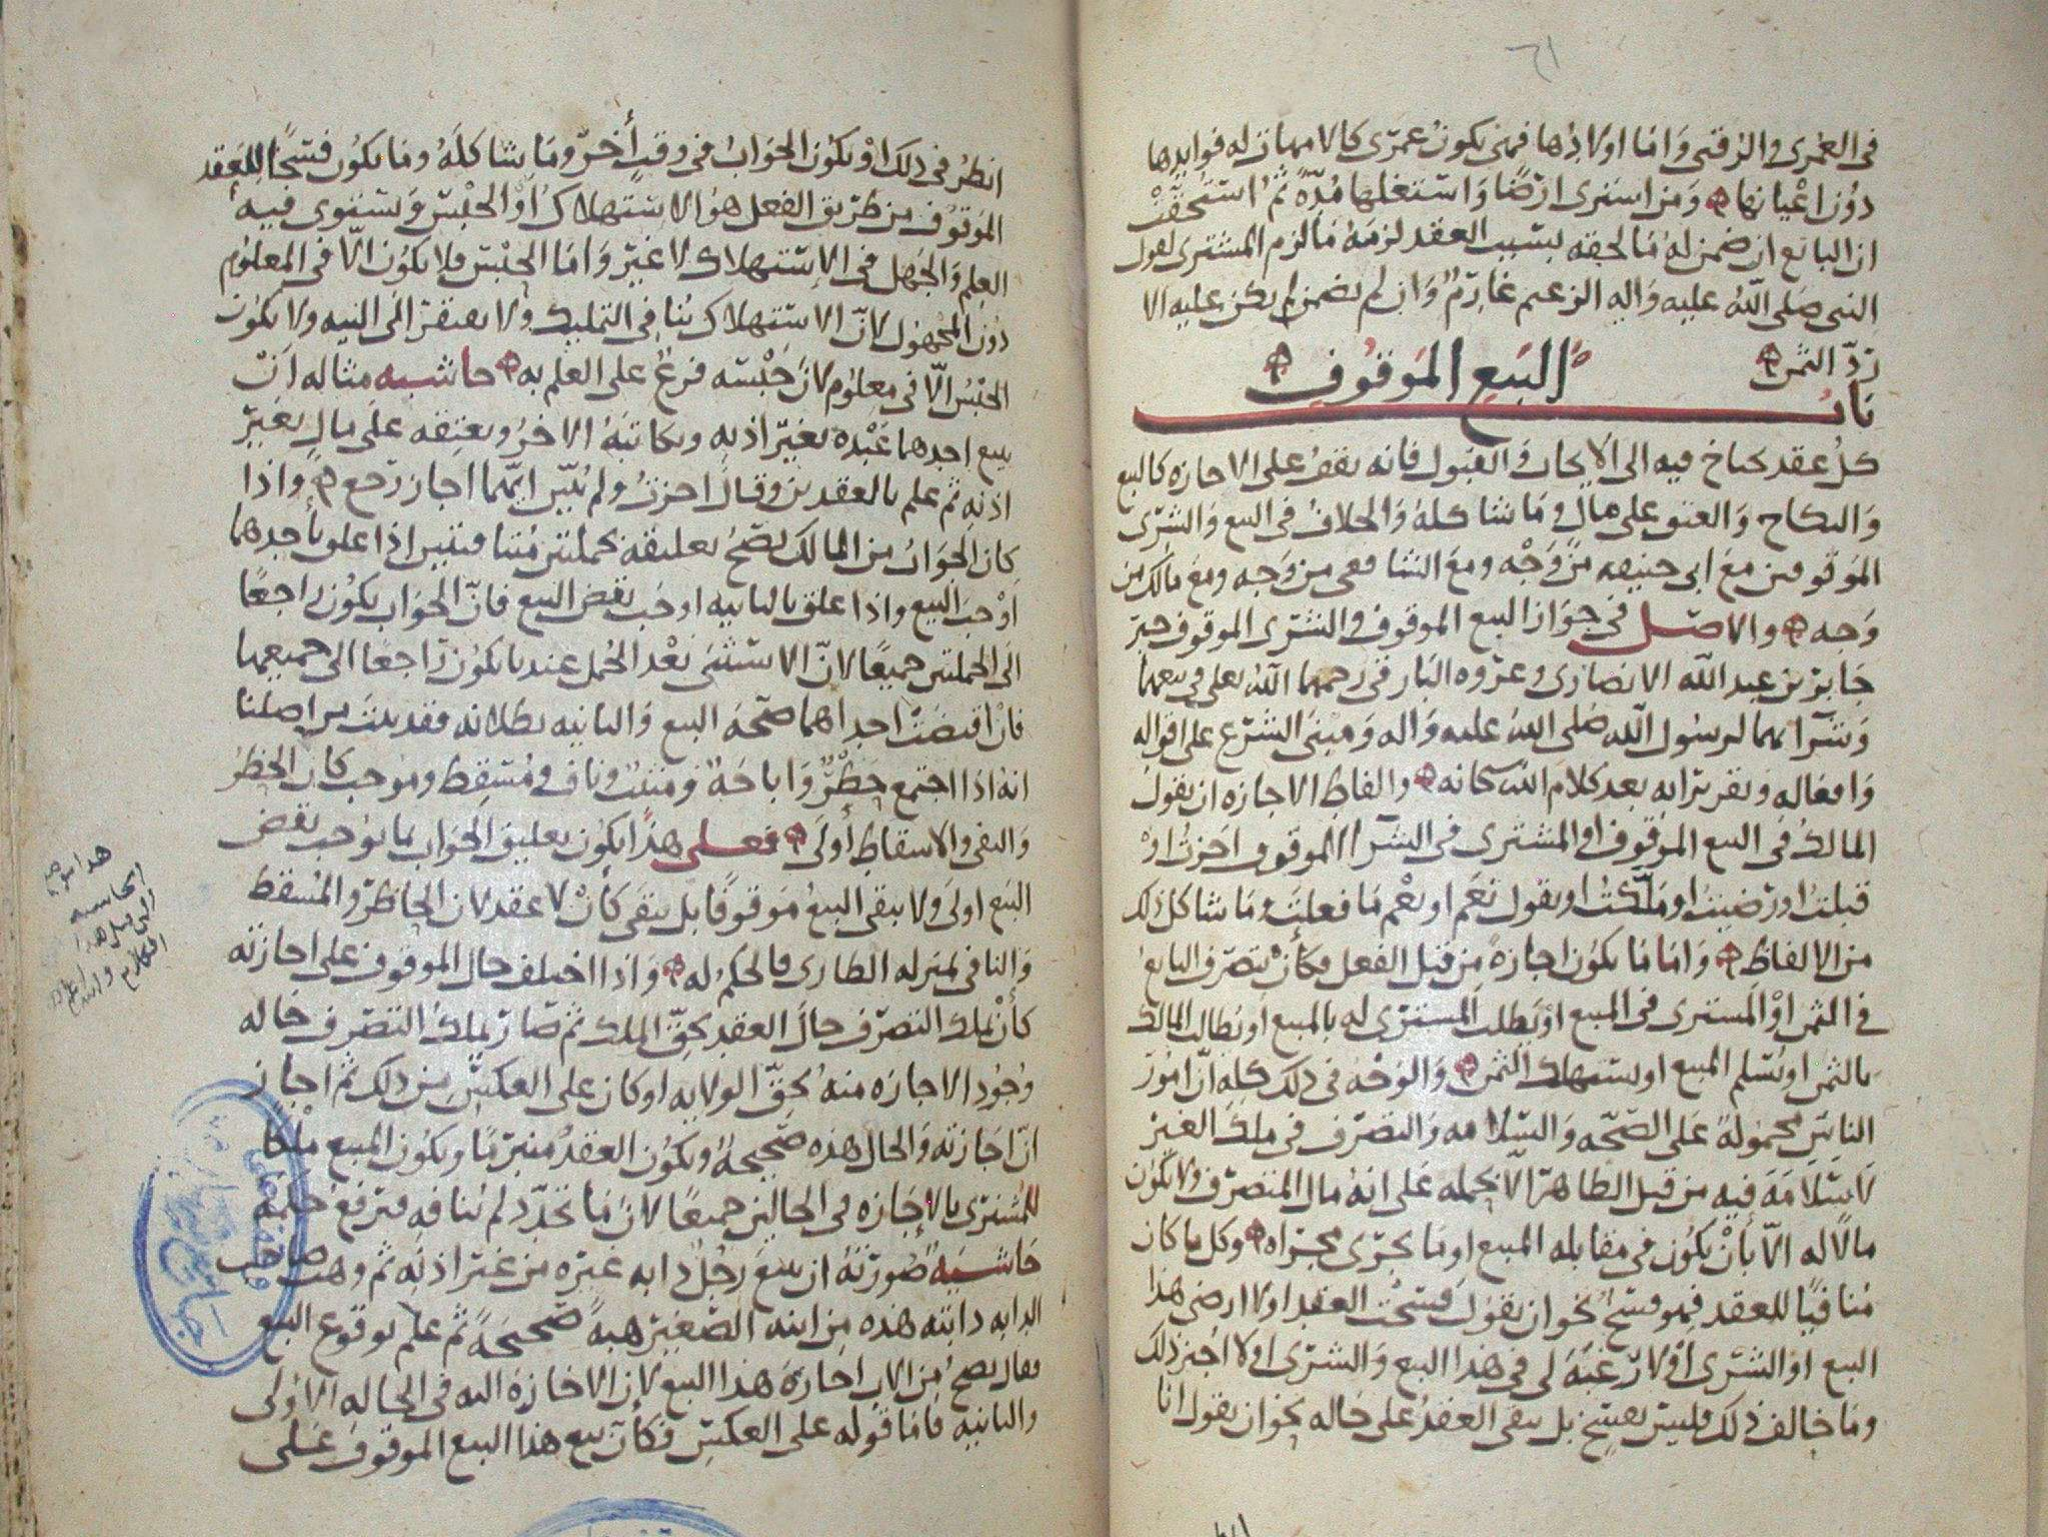 في العمرى والرقبى وَامّا اولادُها فمتى يكونُ عمرَى كالامهات له فوايدها
دوُن اعْيانها وَمن اشترى ارضًا وَاستغلها مُدّةً ثمُ استحقّتْ
ان البائع ان ضمن لهُ مَا لحقه بسَبب العقد لزمهُ مَا لزم المشترى لقول
النبى صَلى اللّهُ عليه وَاله الزعيم غارمٌ وَان لم يضمن لم يكن عليه الا
رَدّ الثمن
بَابُ البَيع المَوقوُف
كلُ عقد يحتاج فيه الى الايجاب وَالقبول فانه يقفُ على الاجازه كالبيع
وَالنكاح وَالعتق على مال وَمَا شاكلهُ وَالخلافُ في البيع وَالشرى
الموَقوفين معَ ابى حنيفه من وَجْه ومعَ الشافعى من وَجه ومع مالك من
وَجه والاصَل في جوَاز البيع الموقوف وَالشرى الموقوف خبر
جَابر بن عبد اللّه الانصارى وعروه البارقى رحمهما اللّهُ تعلى في بيعهما
وَشرآئهما لرسُول اللّه صَلى اللّهُ عليه وَاله وَمبنَى الشرع على اقواله
وَافعاله وَتقريراته بعد كلام اللّه سبحانه والفاظ الاجازه ان يقول
المالك في البيع الموَقوف او المشترى في الشرآ الموقوف اجزتُ اوْ
قبلتُ اورَضيتُ او مَلّكتُ او يقول نَعَم اونعْم مَا فعلتَ وَمَا شاكل ذلك
من الالفاظ وَامّا مَا يكوُن اجازةً مِن قبل الفعل فكأنْ يتصرّف البايعُ
في الثمن اوْ المشترى فى المبيع اوْ يطلب المشترى له بالمبيع او يُطالب المالك
بالثمن او يُسَلم المبيع او يستهلك الثمن وَالوَجْهُ في ذلك كله انّ امُورَ
الناسِ محموُلة عَلى الصّحّه وَالسّلامه وَالتصرّف في ملك الغير
لا سَلامَة فيه من قبل الظاهر الا بحمله عَلى انهُ مال المتصرّف ولا يكوُن
مالاً له الاّ بأنْ يكوُن في مقابله المبيع او مَا يجرى مجراه وكل ما كان
مُنافيًا للعقد فهو فسخٌ نحو ان يقوُل فسختُ العقد اولا ارضى هذا
البيع اوْ الشرى اوْ لا رَغبَة لى في هذا البيع وَالشرى اولا اجيز ذلك
ومَا خالف ذلك فليسَ بفسخ بل يبقى العقدُ على حَاله نحو ان يقول انا
انظرُ في ذلك اوْ يكوُن الجوَابُ في وقتٍ أخر وَمَا شاكلهُ ومَا يكوُن فسْخًا للعَقد
الموقوُف من طريق الفعل هوُ الاستهلاكُ اوْ الحَبْسُ وَيستوى فيه
العلم وَالجَهل في الاستهلاك لا غيرَ وَامّا الحبْسُ فلا يكوُن الاّ في المعلوُم
دوُن المجهوُل لانّ الاستهلاك يُنافي التمليك وَلا يفتقر الى النيه ولا يكوُن
الحَبْسُ الاّ في معلوُم لانّ حَبْسَه فرعٌ على العلم به حاشيه مثاله انْ
يبيع احدهما عَبْده بغير اذنه ويكاتبهُ الاخرُ ويعتقه على مال بغير
اذنه ثم علم بالعقدين وقال اجزتُ ولم يُبيّن ايّهما اجاز رَجع واذا
كان الجوَابُ من المالك يصَحّ تعليقه بجملتين مُتنافيتين اذا علق بأحدهما
اوْجبَ البيع واذا علق بالثانيه اوجَب نقض البيع فانّ الجوَاب يكوُن رَاجعًا
الى الجملتين جميعًا لانّ الاستثنى بَعْد الجُمل عندنا يكوُن رَاجعًا الى جميعها
فان اقتضَتْ احداهما صحّة البيع وَالثانيه بطلانه فقد ثبت من اصلنا
انهُ اذا اجتمع حظْرٌ وَاباحَةٌ وَمثبتٌ وناف وَمُسقط وموُجب كان الحظرُ
وَالنفى وَالاسقاط أولَى فعَلى هذا يكوُن تعليق الجوَاب بما يوُجب نقض
البَيع اولىَ وَلا يبقى البَيعُ مَوقوفًا بل يبقَى كأنْ لا عقد لان الحاظرَ وَالمُسقط
وَالنافي بمنزله الطارى فالحكم له وَاذا اختلف حال الموقوف على اجازته
كأنْ يملك التصرّف حالَ العقد بحقّ الملك ثم صَارَ يملكُ التصرّف حَاله
وُجُود الاجازه منهُ بحقّ الولايه او كان على العكسِ مِن ذلك ثمّ اجازَ
انّ اجَازته وَالحال هذه صَحيحةٌ ويكوُن العقدُ منبرمًا ويكوُن المبيع ملكًا
للمُشترى بالاجَازه في الحالين جميعًا لانّ مَا تجدّد لم يُنافه فيرفعَ حُكمهُ
حَاشيَهٌ صُورتهُ ان يبيعَ رَجُلٌ دابه غيره من غير اذنه ثم وهبَ صاحب
الدابه دابته هذه مِن ابنه الصّغير هبةً صَحيحَةً ثم علم بوقوع البيع
فقال يصح مِن الاب اجازة هذا البيع لان الاجازة اليه في الحاله الاولى
والثانيه فامّا قوله على العكس فكأنْ يبيع هذا البيع الموقوف عَلى